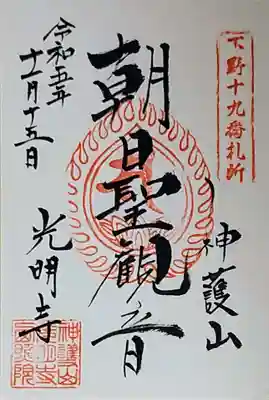 下野十九番札所
神護山
朝日聖観音
令和五年
十二月十五日
光明寺